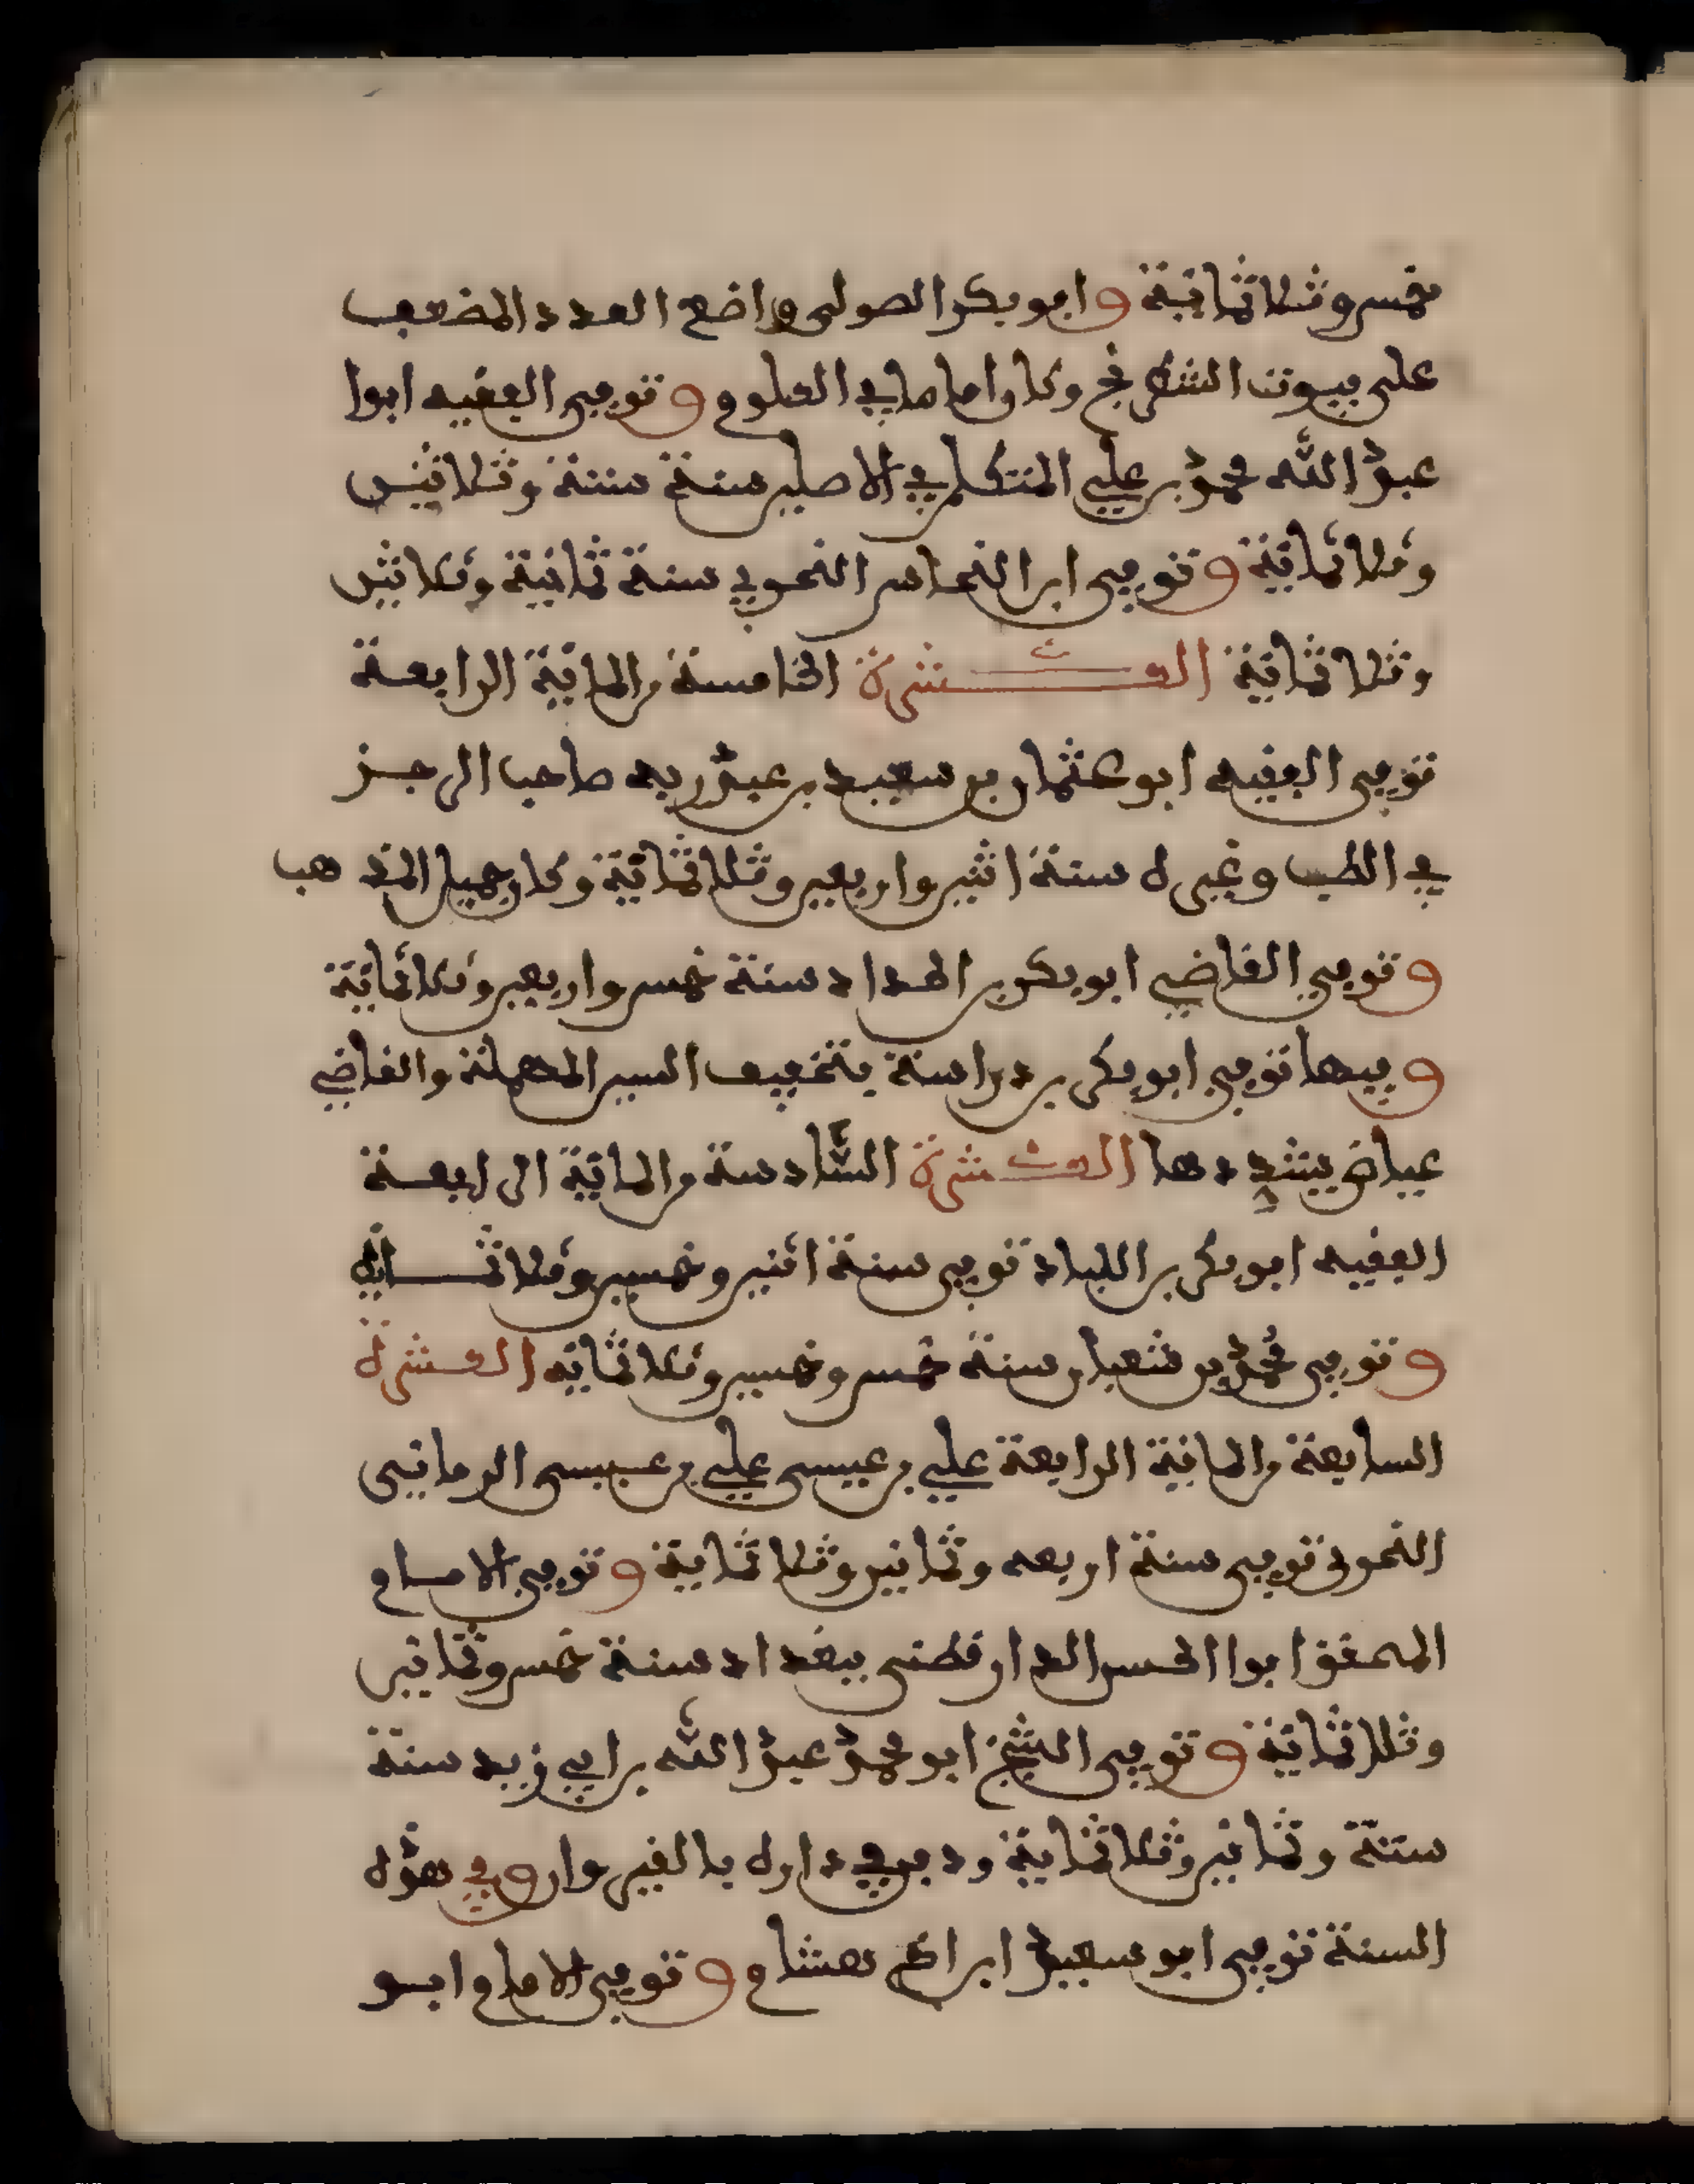 خمس وثلاثمائة وابو بكر الصولي واضع العدد المضعف
على بيوت الشطرنج وكان اماما في العلوم وتوفي الفقيه ابوا
عبد الله محمد بن علي المتكلم في الاصلين سنة ستة وثلاثين
وثلاثمائة وتوفي ابن النحاس النحوي سنة ثمانية وثلاثين
وثلاثمائة العشرة الخامسة من المائة الرابعة
توفي الفقيه ابو عثمان بن سعيد بن عبد ربه صاحب الرجز
في الطب وغيره سنة اثنين واربعين وثلاثمائة وكان جميل المذهب
وتوفي القاضي ابو بكر بن الحداد سنة خمس واربعين وثلاثمائة
وفيها توفي ابو بكر بن دراسة بتخفيف السين المهملة والقاضي
عياض يشددها العشرة السادسة من المائة الرابعة
الفقيه ابو بكر بن اللباد توفي سنة اثنين وخمسين وثلاثمائة
وتوفي محمد بن شعبان سنة خمس وخمسين وثلاثمائه العشرة
السابعة من المائة الرابعة علي بن عيسى علي بن عيسى الرماني
النحوي توفي سنة اربعه وثمانين وثلاثمائة وتوفي الامام
المحقق ابوا الحسن الدارقطني ببغداد سنة خمس وثمانين
وثلاثمائة وتوفي الشيخ ابو محمد عبد الله بن ابي زيد سنة
ستة وثمانين وثلاثمائة ودفن في داره بالقيروان وفي هذه
السنة توفي ابو سعيد ابن اخي هشام وتوفي الامام ابو